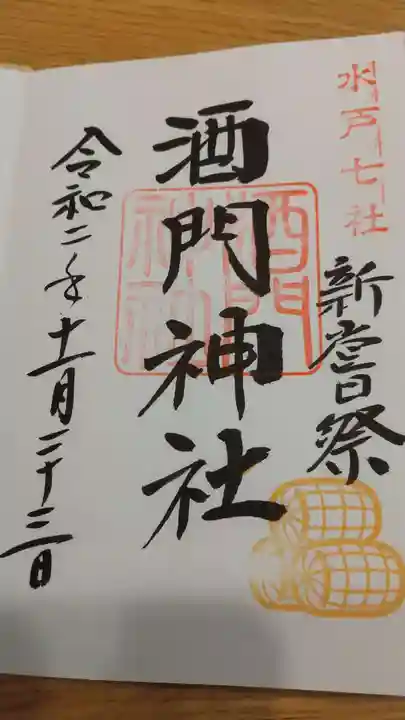 水戸七社
新嘗祭
酒門神社
酒門神社
令和二年十一月二十三日